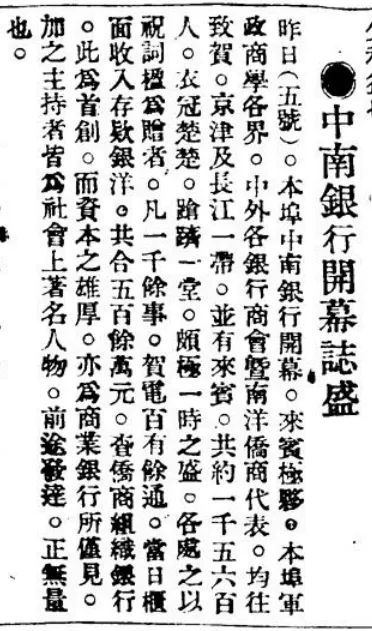 ●中南銀行開幕誌盛
昨日(五號)。本埠中南銀行開幕。來賓極夥。本埠軍
政商學各界。中外各銀行商會暨南洋僑商代表。均往
致賀。京津及長江一帶。並有來賓。共約一千五六百
人。衣冠楚楚。蹌躋一堂。頗極一時之盛。各處之以
祝詞楹爲贈者。凡一千餘事。賀電百有餘通。當日櫃
面收入存欵銀洋。共合五百餘萬元。查僑商組織銀行
。此爲首創。而資本之雄厚。亦爲商業銀行所僅見。
加之主持者皆爲社會上著名人物。前途發達。正無量
也。